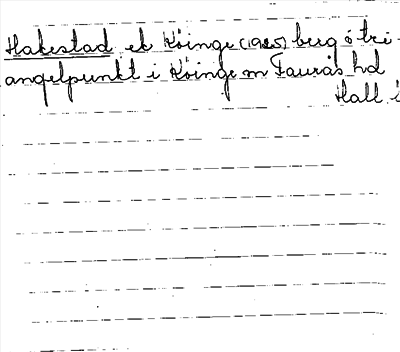 Hakestad ek Köinge (1925) berg o tri-
angelpunkt i Köinge sn Faurås hd
Hall. l